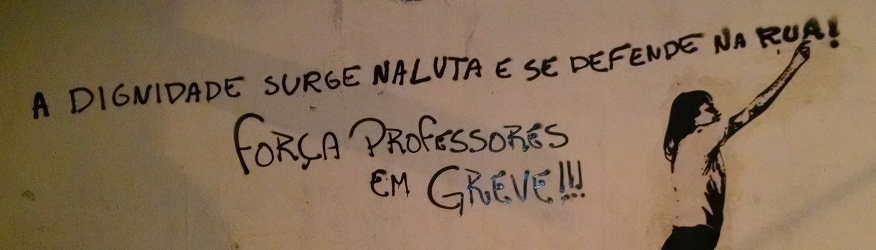 A DIGNIDADE SURGE NA LUTA E SE DEFENDE NA RUA!
FORÇA PROFESSORES
EM GREVE!!!